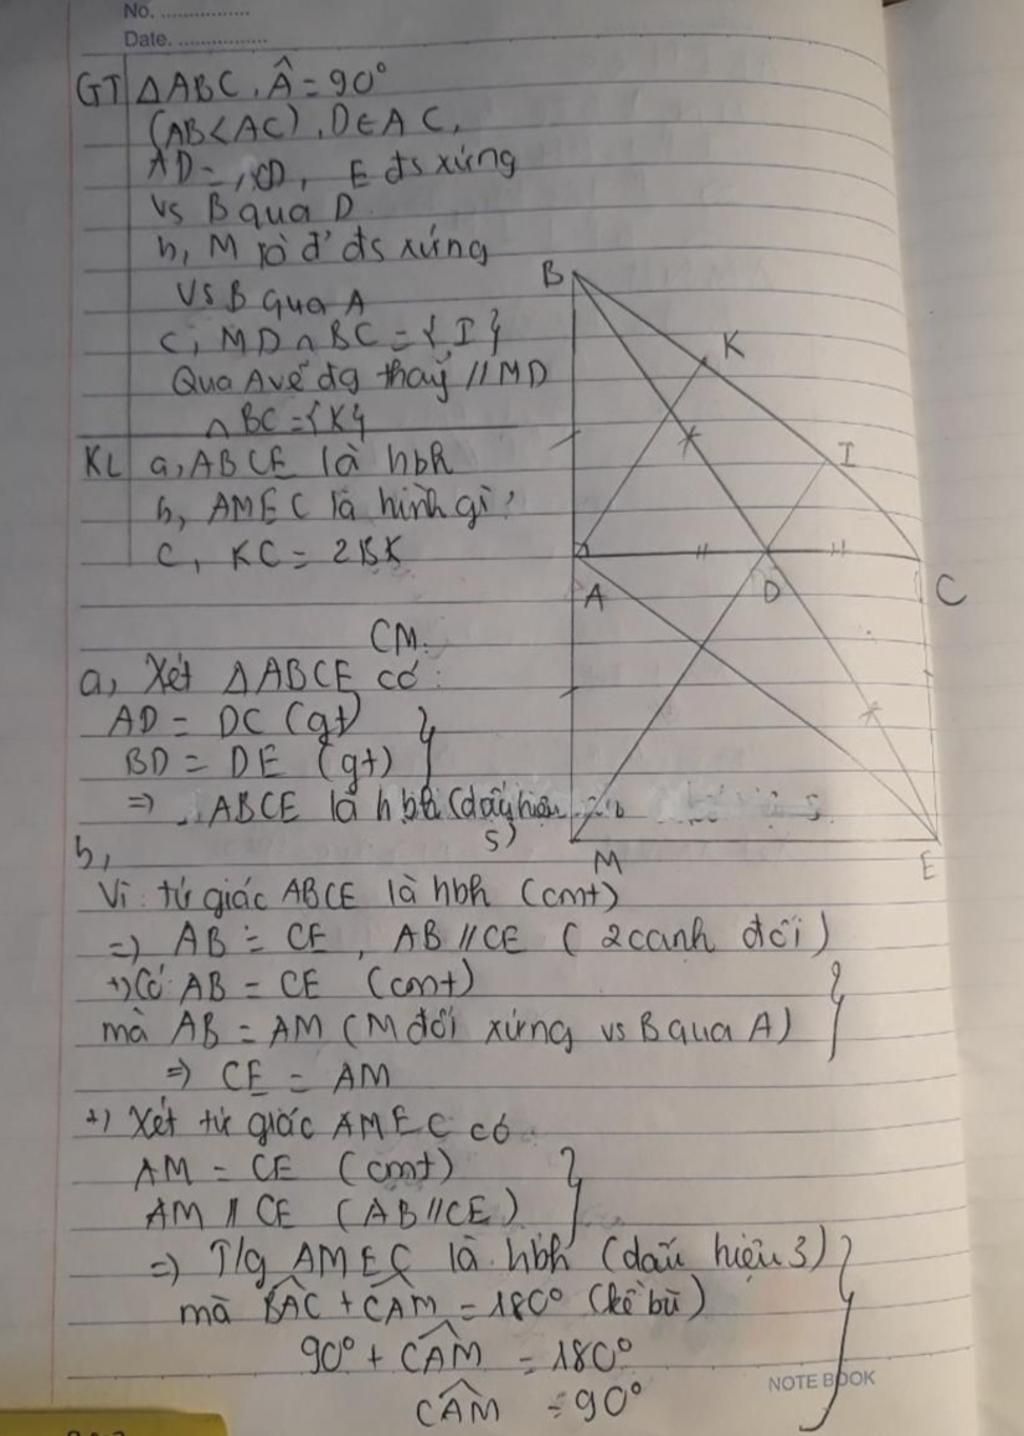 No. ................
Date. ................
GT ΔABC, Â = 90°
(AB < AC), D ∈ AC,
AD = CD, E đs xứng
vs B qua D
b, M là đ' đs xứng
vs B qua A
c, MD ∩ BC = {I}
Qua A vẽ đg thẳg // MD
∩ BC = {K}
KL a, ABCE là hbh
b, AMEC là hình gì?
c, KC = 2BK
B
K
I
A
D
C
M
E
CM.
a, Xét ΔABCE có:
AD = DC (gt) }
BD = DE (gt)
=> ABCE là hbh (dấu hiệu
5)
b,
Vì tứ giác ABCE là hbh (cmt)
=) AB = CE, AB // CE (2 cạnh đối)
+) Có: AB = CE (cmt) }
mà AB = AM (M đối xứng vs B qua A)
=> CE = AM
+) Xét tứ giác AMEC có
AM = CE (cmt) }
AM // CE (AB // CE)
=) T/g AMEC là hbh (dấu hiệu 3) }
mà BAC + CAM = 180° (kề bù)
90° + CAM = 180°
CAM = 90°
NOTE BOOK